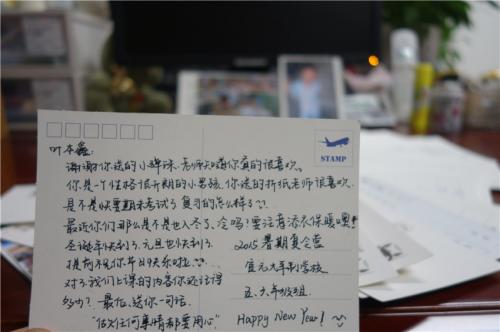 叶本鑫:
谢谢你送的小弹珠,老师知道你真的很喜欢。
你是一个性格很开朗的小男孩,你送的折纸老师很喜欢。
是不是快要期末考试了 复习的怎么样了??
最近你们那么是不是也入冬了,冷吗?要注意添衣保暖噢!
圣诞节快到了,元旦也快到了
提前祝你节日快乐啦!
对了我们上课的内容你还记得
多少?最后,送你一句话,
"做任何事情都要用心"
STAMP
2015 暑期夏令营
宜元九年制学校
五、六年级组.
Happy New Year!